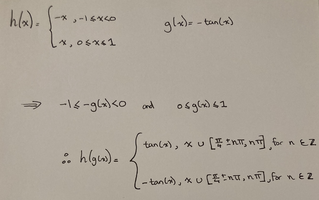 h(x) = { -x , -1 ≤ x < 0
x , 0 ≤ x ≤ 1
g(x) = -tan(x)
⇒ -1 ≤ -g(x) < 0 and 0 ≤ g(x) ≤ 1
∴ h(g(x)) = { tan(x) , x ∪ [π/4 ± nπ, nπ] , for n ∈ Z
-tan(x) , x ∪ [π/4 ± nπ, nπ] , for n ∈ Z